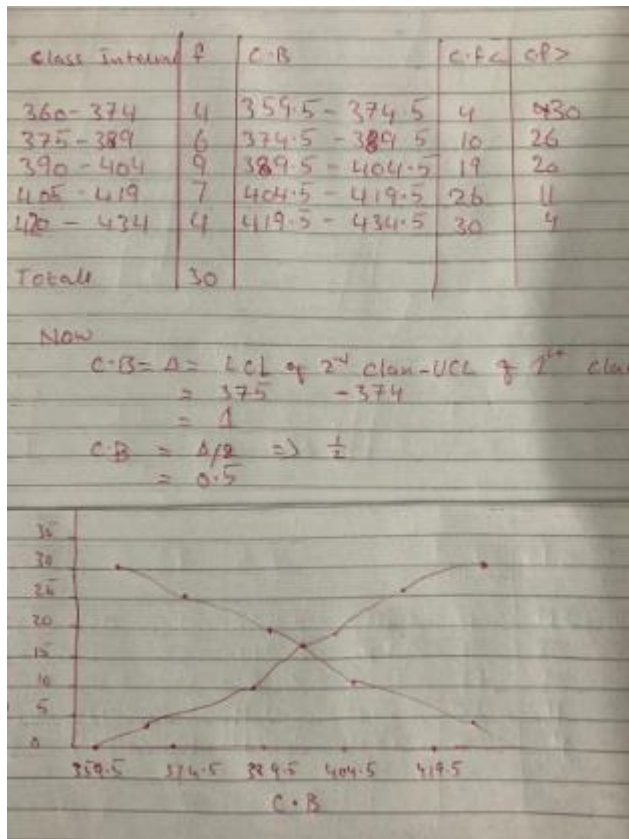 Class Interval f C·B C·F< CF>
360-374 4 359.5 - 374.5 4 30
375-389 6 374.5 - 389 5 10 26
390 - 404 9 389.5 - 404.5 19 20
405 - 419 7 404.5 - 419.5 26 11
420 - 434 4 419.5 - 434.5 30 4
Total 30
Now
C·B = Δ = LCL of 2nd class - UCL of 1st clas
= 375 - 374
= 1
C·B = Δ/2 => 1/2
= 0.5
35
30
25
20
15
10
5
0
359.5 374.5 389.5 404.5 419.5
C·B